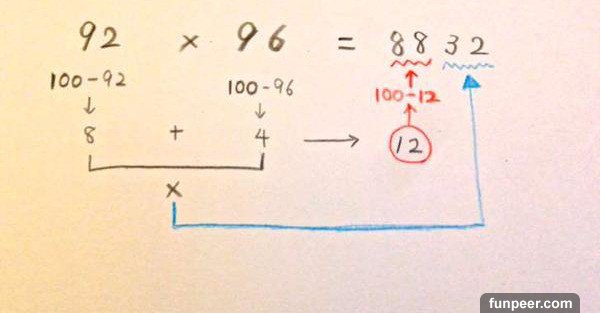 92 × 96 = 8832
100-92 100-96 100-12
↓ ↓ ↑
8 + 4 → 12
×
funpeer.com